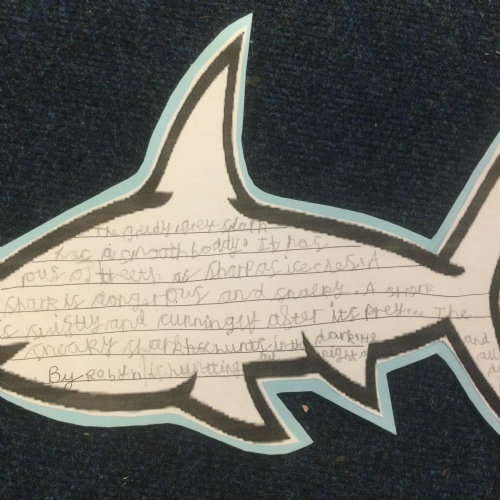 The greedy, grey shark
has a smooth boddy. It has
rous of treeth as sharp as icecles. A
shark is dangerous and sneeky. A shark
swiftly and cunningly after its prey... The
sneaky shark hunts in the dark
night
and
all
By Robyn is huntting